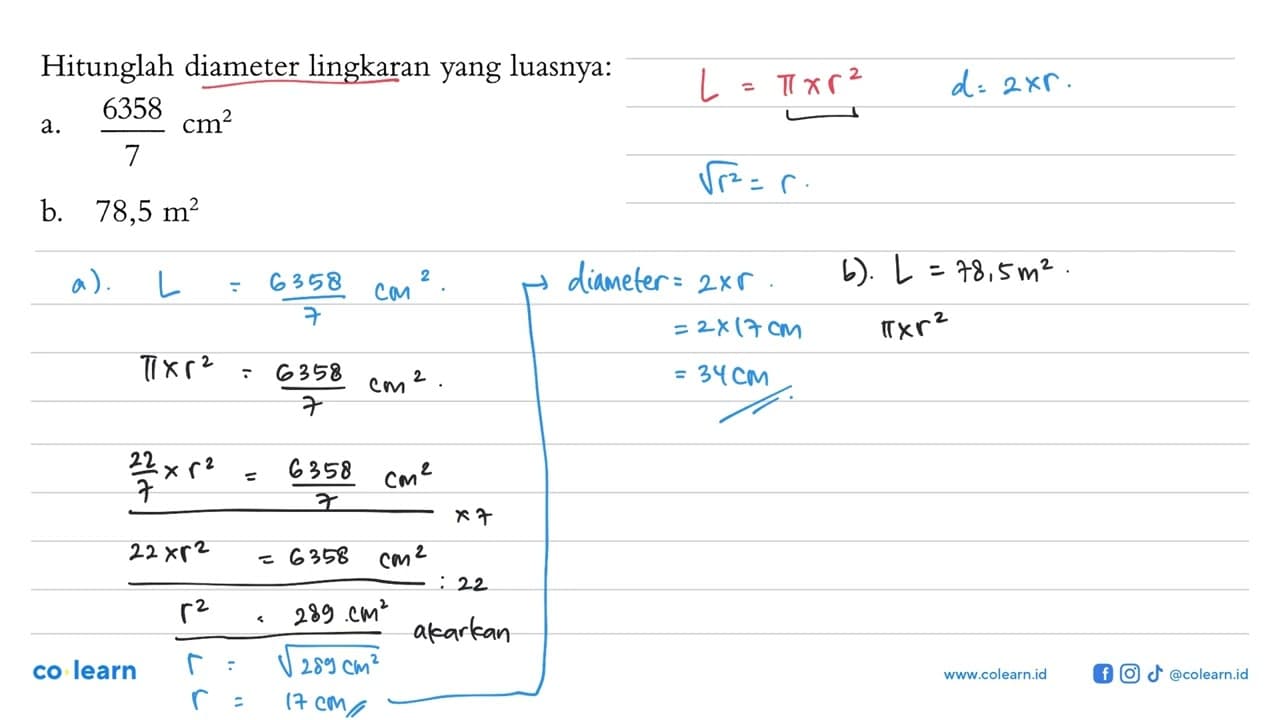 Hitunglah diameter lingkaran yang luasnya:
a. 6358/7 cm²
b. 78,5 m²
L = π x r²
d = 2 x r.
√r² = r.
a). L = 6358/7 cm².
π x r² = 6358/7 cm².
22/7 x r² = 6358/7 cm²
x 7
22 x r² = 6358 cm²
: 22
r² = 289 cm²
akarkan
r = √289 cm²
r = 17 cm
diameter = 2 x r.
= 2 x 17 cm
= 34 cm
b). L = 78,5 m².
π x r²
co learn
www.colearn.id
@colearn.id